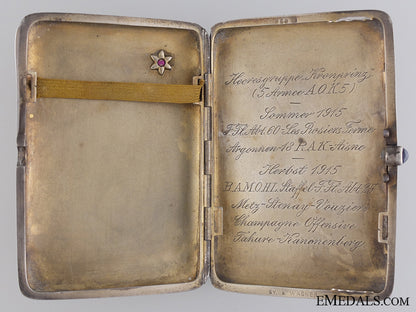 Heeresgruppe „Kronprinz"
(5. Armee A.O.K. 5)
Sommer 1915
F. Fl. Abt. 60 - Les Rosiers Ferme
Argonnen 18 P.A.K. Aisne
Herbst 1915
B.A.M.O.H.L. Staffel F. Fl. Abt. 25
Metz - Stenay - Vouziers
Champagne Offensive
Tahure - Kanonenberg
EMEDALS.COM